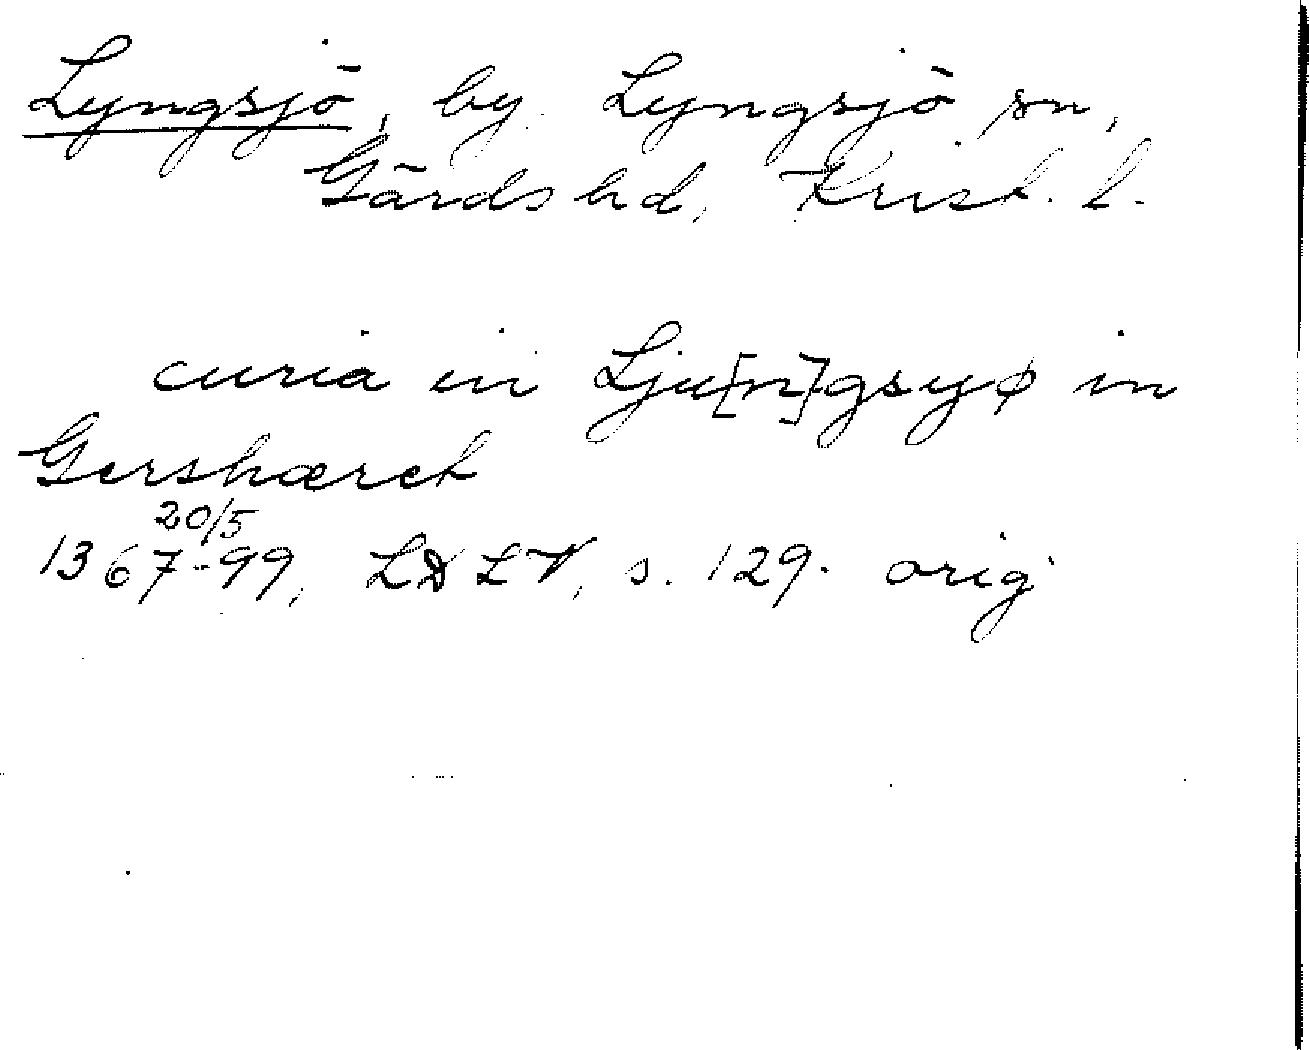 Lyngsjö, by. Lyngsjö sn,
Gärds hd, Krist. l.
curia in Lju[n]gsyø in
Gershæret
20/5
1367-99, LDLV, s. 129. orig